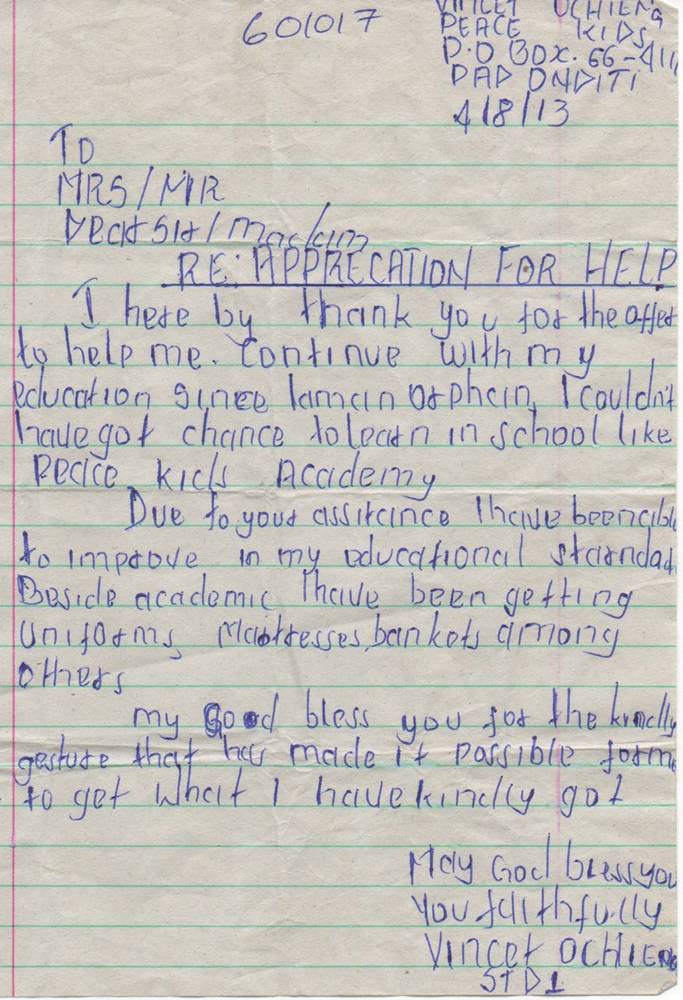 601017
VINCET OCHIENG
PEACE KIDS
P.O BOX. 66-411
DAD ONDITI
4/8/13
TO
MRS/MIR
Dear Sir/madam
RE: APPRECATION FOR HELP
I here by thank you for the offer
to help me. Continue with my
education since Iaman orphain, I couldn't
have got chance to learn in school like
Peace kids Academy
Due to your assitance Ihave been abl
to improve in my educational standad
Beside academic Ihave been getting
uniforms, Mattresses, bankets among
others
my Good bless you for the kindly
gesture that has made it possible form
to get what I have kindly got
May God bless you
You faithfully
Vincet OCHIENG
STD1